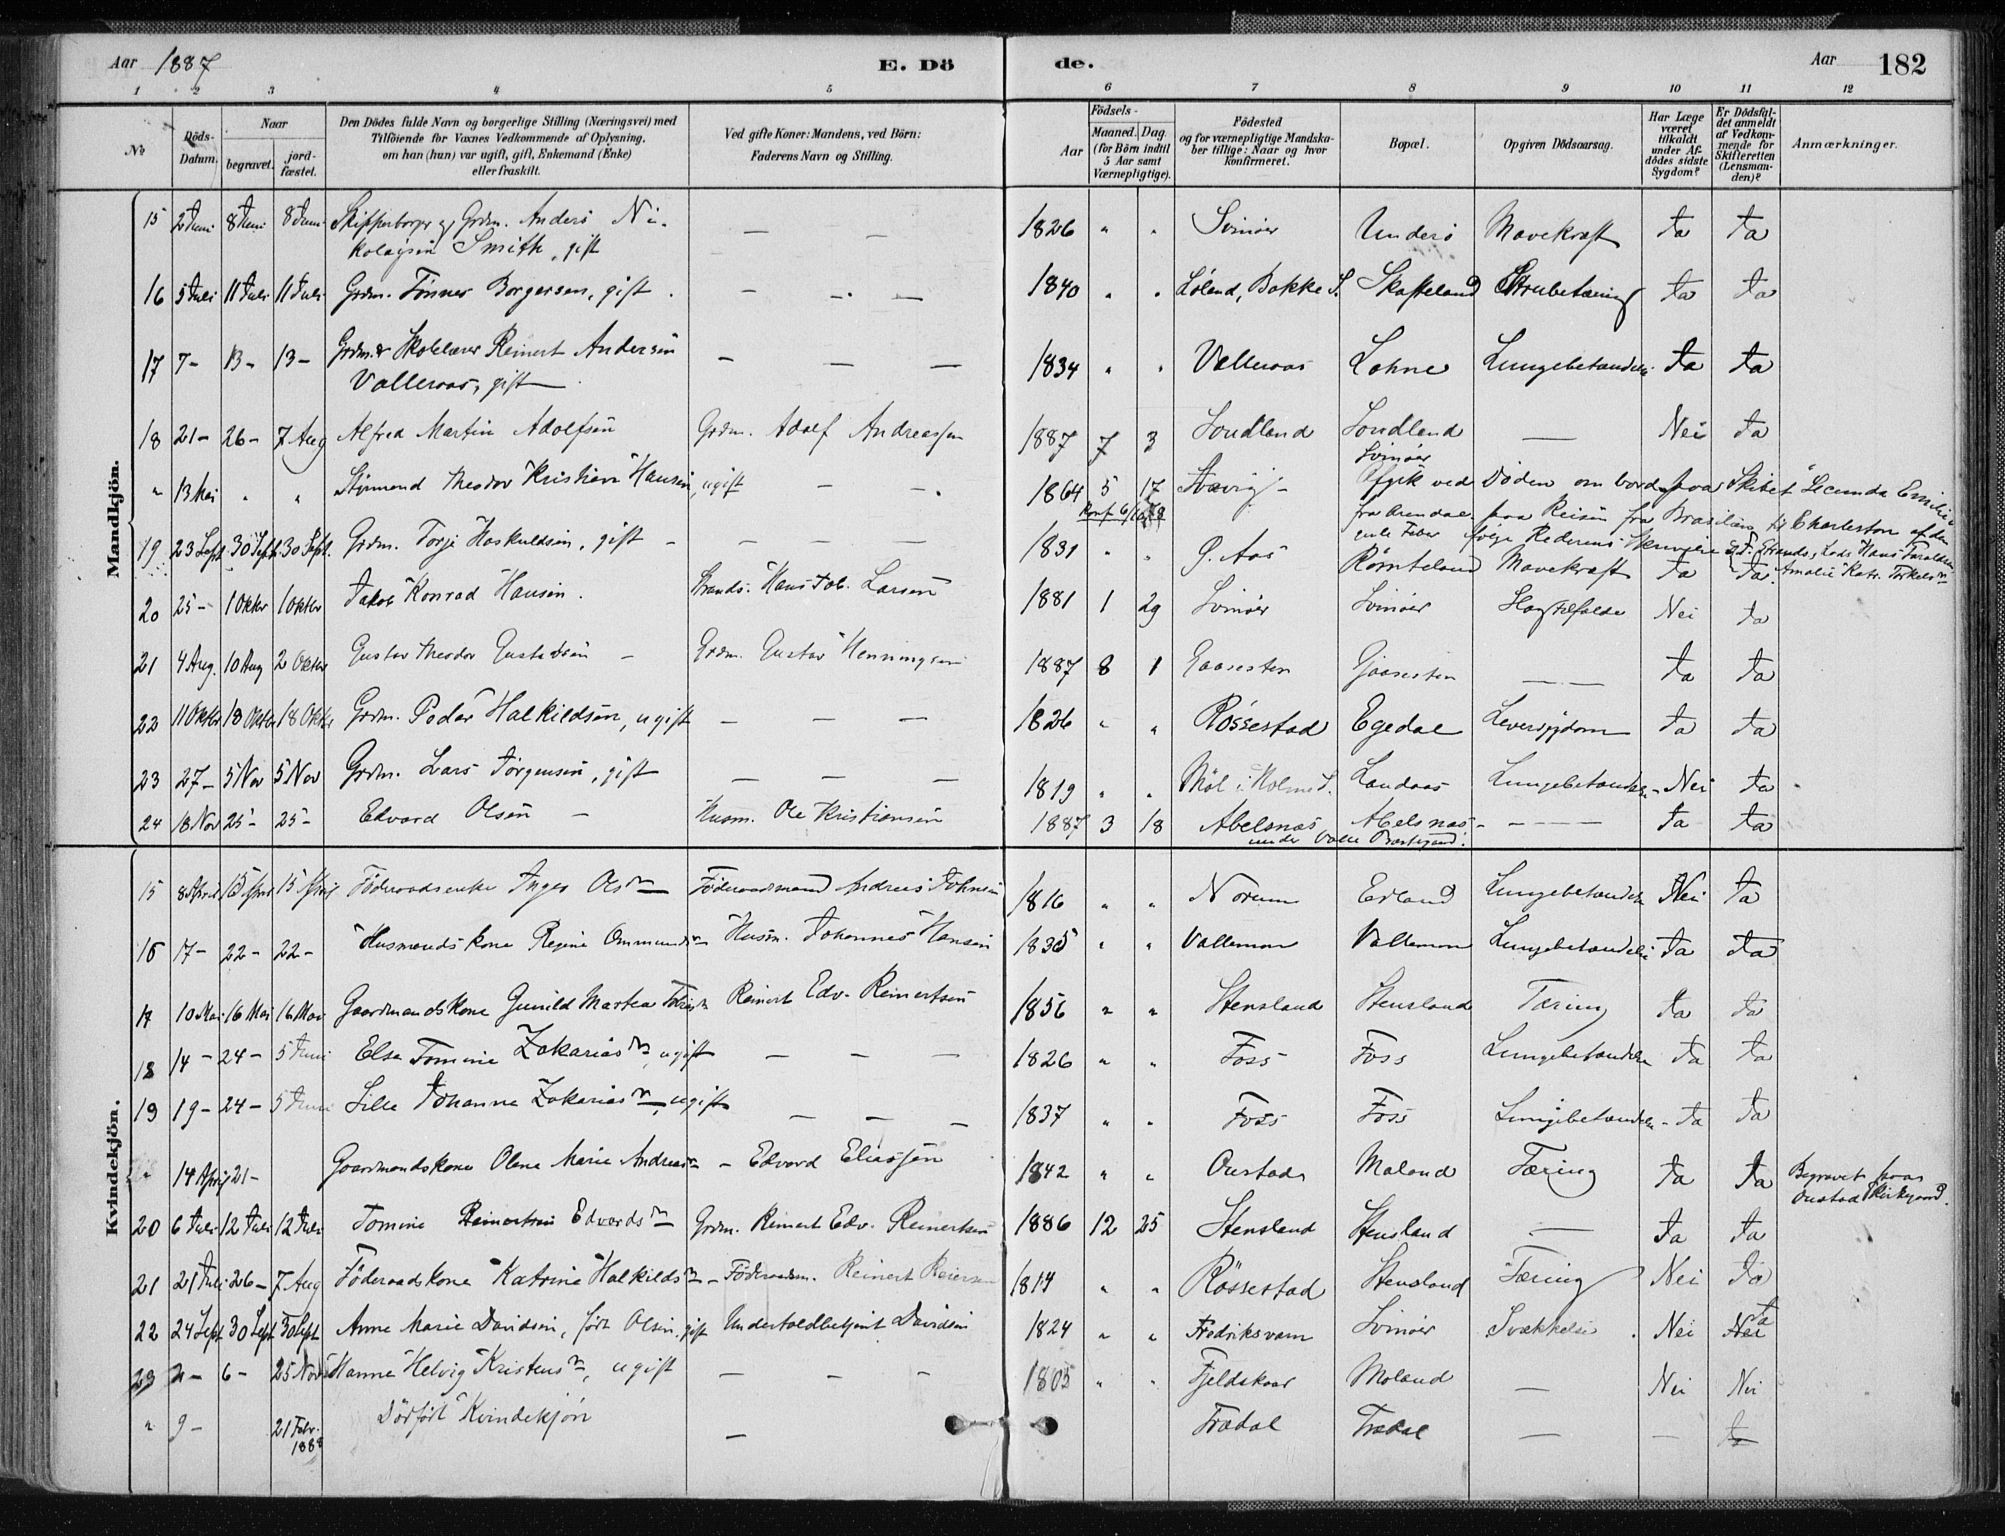 Aar 1887 E. Dö de. Aar 182
1 2 3 4 5 6 7 8 9 10 11 12
No Döds-Datum. Naar begravet. jord-fæstet. Den Dödes fulde Navn og borgerlige Stilling (Næringsvei) med Tilföiende for Voxnes Vedkommende af Oplysning, om han (hun) var ugift, gift, Enkemand (Enke) eller fraskilt. Ved gifte Koner: Mandens, ved Börn: Faderens Navn og Stilling. Födsels- Aar Maaned. Dag. (for Börn indtil 5 Aar samt Værnepligtige). Födested og for værnepligtige Mandskaber tillige: Naar og hvor konfirmeret. Bopæl. Opgiven Dödsaarsag. Har Læge været tilkaldt under Afdödes sidste Sygdom? Er Dödsfaldet anmeldt af Vedkommende for Skifteretten (Lensmanden)? Anmærkninger.
Mandkjön.
15 2 Juni 8 Juni 8 Juni Grdm. Anders Ni- — — 1826 " " Svinöer Underö Mavekræft Ja Ja
kolaysen Smith, gift
16 5 Juli 11 Juli 11 Juli Grdm. Tönnes Borgersen, gift — — — 1840 " " Löland, Bakke S. Skofteland Strubetæring Ja Ja
17 7 – 13 – 13 – Grdm. & Skolelærer Reinert Andersen — — — 1834 " " Valleraas Lohne Lungebetændelse Ja Ja
Valleraas, gift —
18 21 – 26 – 7 Aug Alfred Martin Adolfsen Grdm. Adolf Andreassen 1887 7 3 Sondland Sondland — Nei Ja
Svinöer
" 13 Mai " " Styrmand Theodor Kristian Hansen, ugift — — 1864 5 17 Afgik ved Döden om bord paa Skibet "Secunda Emilie
fra Arendal paa Reisen fra Brasilien til Charleston af den
gule Feber ifölge Rederens Skrivelse
19 23 Sept 30 Sept 30 Sept. Grdm. Torje Haskuldsen, gift – — — 1831 " " Ö. Aas Rörnteland Mavekræft Ja Ja
20 25 – 1 Oktbr 1 Oktbr Jakob Konrad Hansen. Strands. Hans Job. Larsen 1881 1 29 Svinöer Svinöer Slagtilfælde Nei Ja
21 4 Aug. 10 Aug 2 Oktbr Gustav Theodor Gustavsen – Grdm. Gustav Henningsen 1887 8 1 Gaasesten Gaasesten — — Ja Ja
22 11 Oktbr 18 Oktbr 18 Oktbr Grdm. Peder Halkildsen, ugift — — — 1826 " " Rössestad Egedal Leversygdom Ja Ja
23 27 – 5 Nov 5 Nov Grdm. Lars Jörgensen, gift — — — 1819 " " Möl i Holme S. Landaas Lungebetændelse – Nei Ja
24 18 Nov 25 – 25 – Edvard Olsen – Husm. Ole Kristiansen 1887 3 18 Abelsnæs Abelsnæs – — — Ja Ja
under Valle Præstegaard.
Kvindekjön.
15 8 April 15 April 15 April Föderaadsenke Inger Olsn Föderaadsmand Andreas Johnsen 1816 " " Norum Edland Lungebetændelse Nei Ja
16 17 – 22 – 22 – Husmandskone Regine Ommundsn Husm. Johannes Hansen 1835 " " Vallemon Vallemon Lungebetændelse Ja Ja
17 10 Mai 16 Mai 16 Mai Gaardmandskone Gunild Martea Tobiasn Reinert Edv. Reinertsen 1856 " " Stensland Stensland Tæring Ja Ja
18 14 – 24 – 5 Juni Else Tomine Zakariasn, ugift — — — 1826 " " Foss Foss Lungebetændelse Ja Ja
19 19 – 24 – 5 Juni Sille Johanne Zakariasn, ugift — — — 1837 " " Foss Foss Lungebetændelse – Ja Ja
" 14 April 21 – Gaardmandskone Olene Marie Andreasn – Edvard Eliassen 1842 " " Oustad Moland Tæring Ja Ja Begravet paa
Oustad Kirkegaard.
20 6 Juli 12 Juli 12 Juli Tomine Edvardsn Grdm. Reinert Edv. Reinertsen 1886 12 25 Stensland Stensland — Ja Ja
21 21 Juli 26 – 7 Aug Föderaadskone Katrine Halkildsn – Föderaadsm. Reinert Reiersen 1814 " " Rössestad Stensland Tæring Nei Ja
22 24 Sept 30 Sept 30 Sept Anne Marie Davidsen, född Olsen, gift Davidsen 1824 " " Fredriksværn Svinöer Svækkelse Nei Nei Ja
23 2 – 6 – 25 Nov Hanne Helvig Kristensn, ugift — — — 1805 " " Fjeldskaar Moland — Nei Nei
" 9 – 21 Febr. 1888 Dödfödt Kvindekjön — Trædal Trædal — — Ja